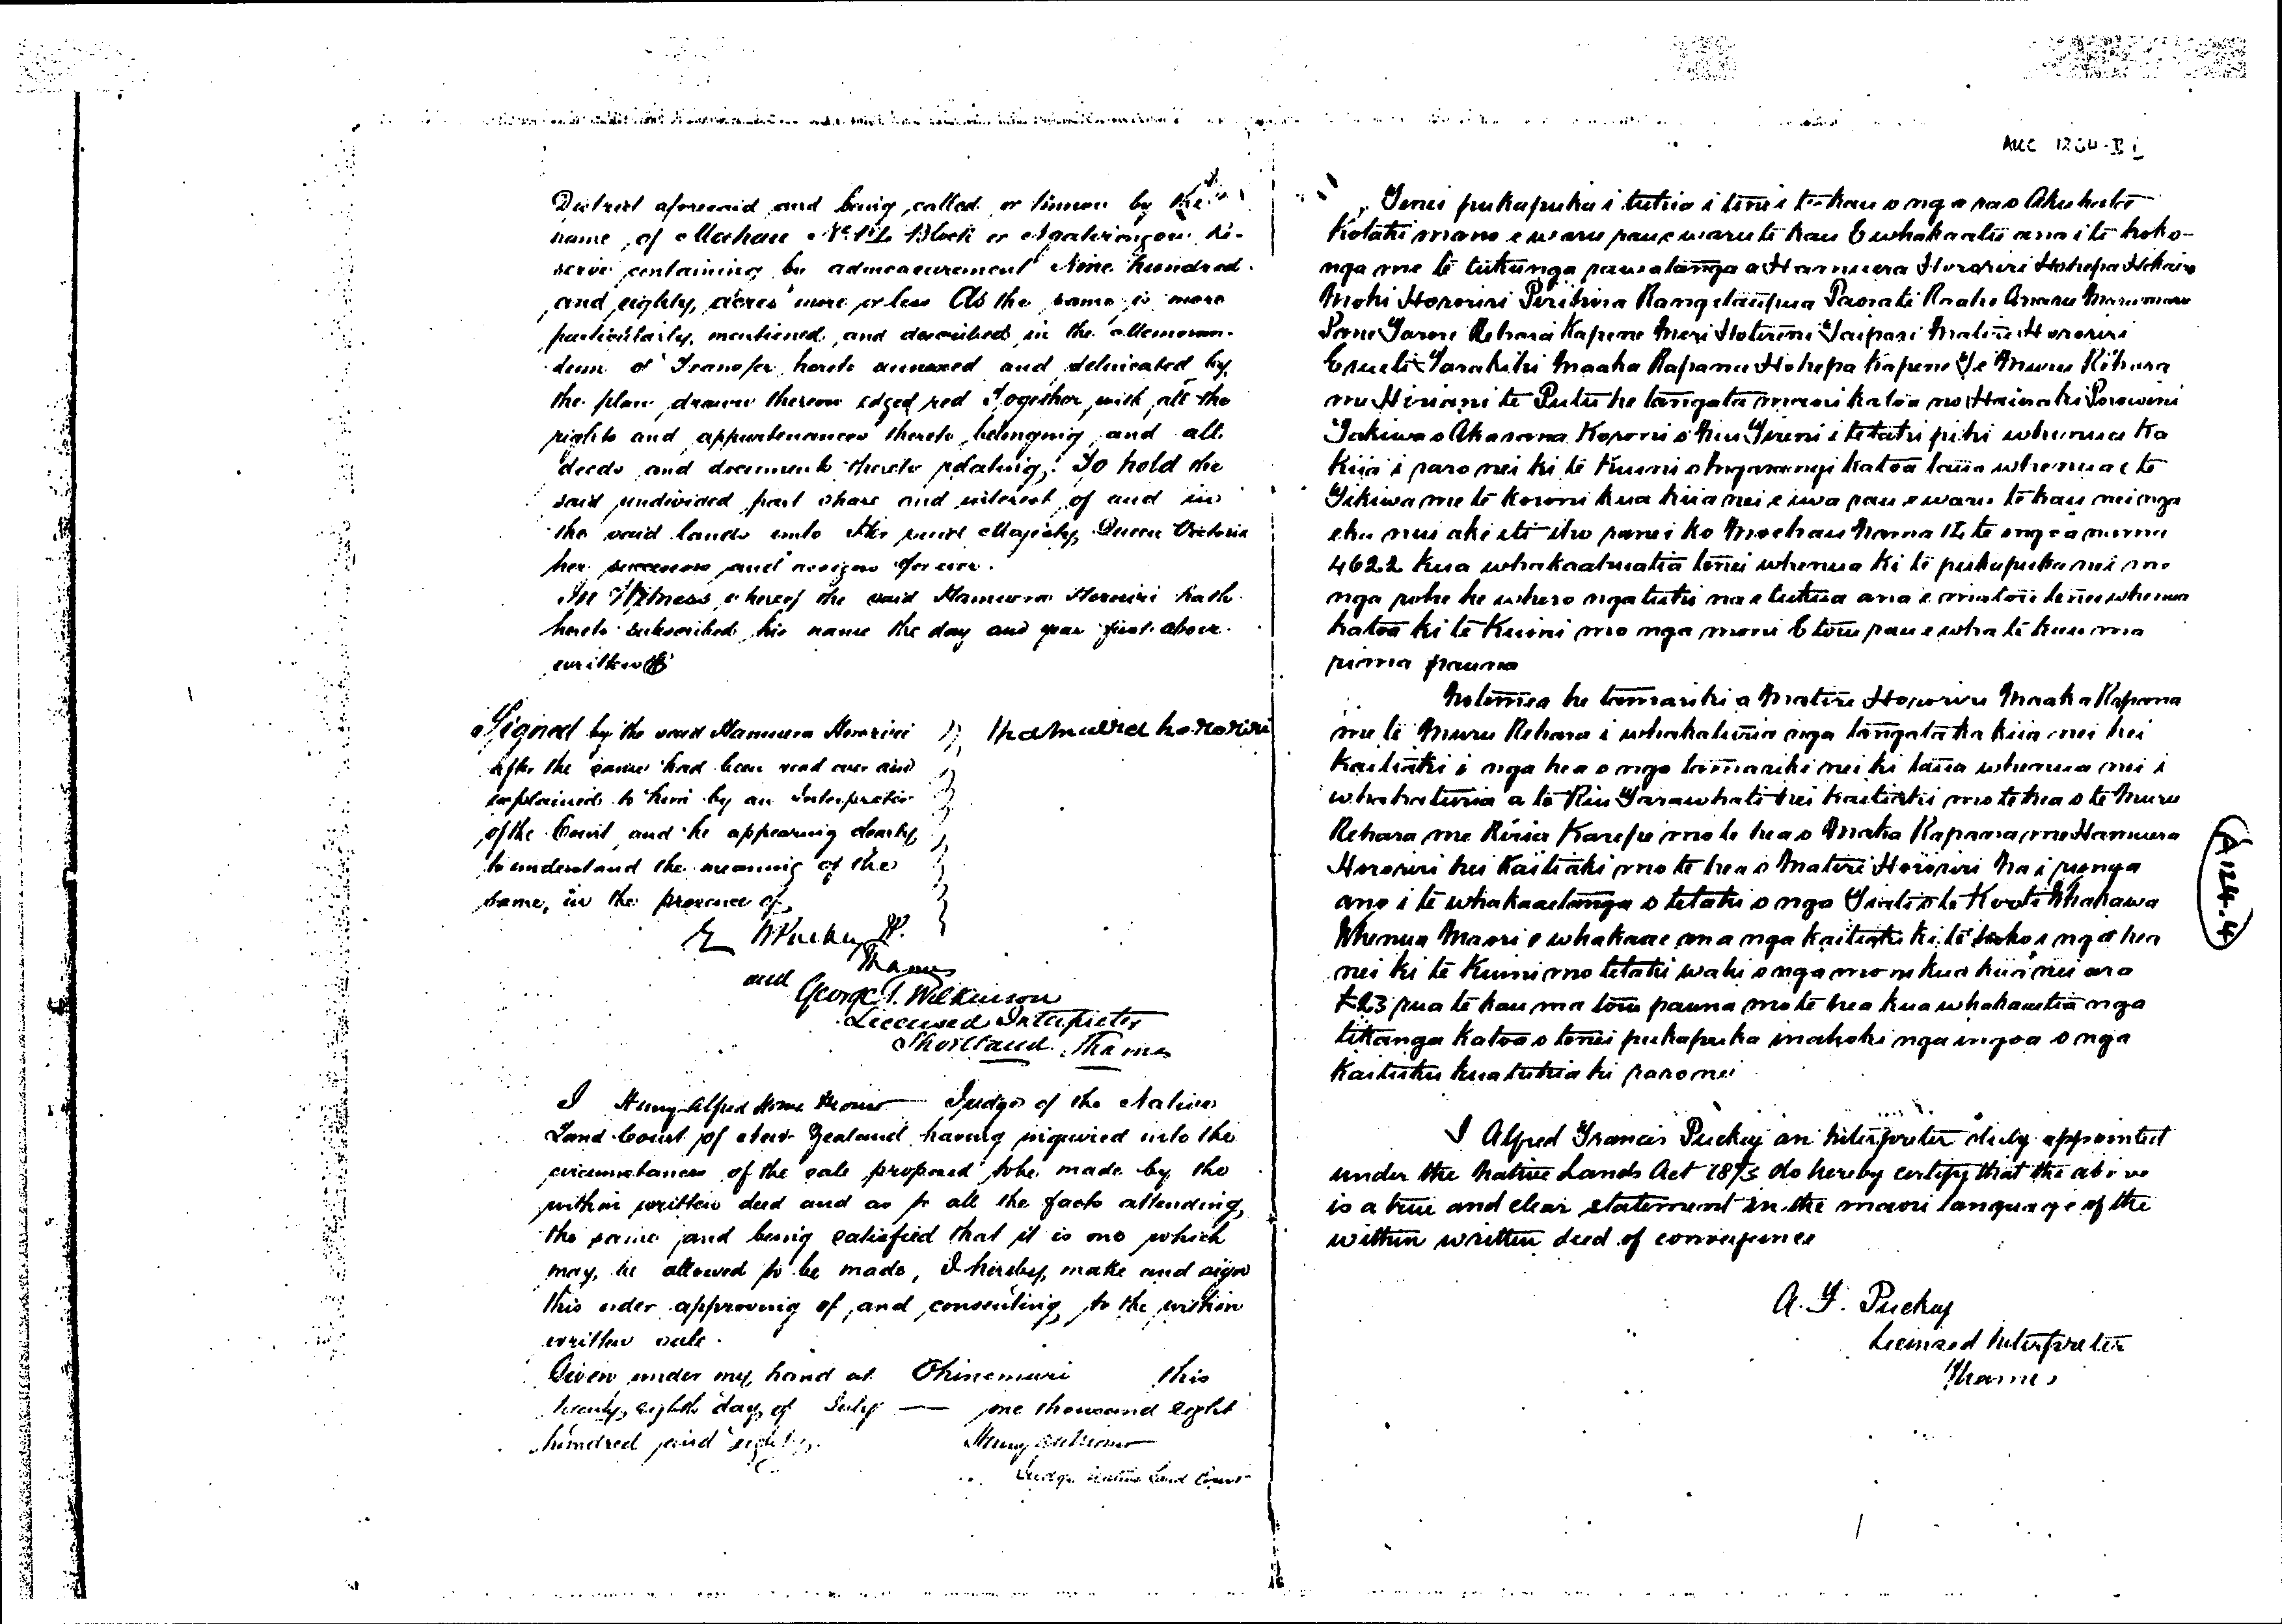 District aforesaid and being called or known by the
name of Moehau No. 1 Block or Ngahirangou Re-
serve containing by admeasurement Nine hundred
and eighty acres more or less As the same is more
particularly mentioned and described in the Memoran-
dum of Transfer hereto annexed and delineated by
the plan drawn thereon edged red Together with all the
rights and appurtenances thereto belonging and all
deeds and documents thereto relating: To hold the
said undivided part share and interest of and in
the said lands unto Her said Majesty Queen Victoria
her successors and assigns for ever.
In Witness whereof the said Hamuera Horoiri hath
hereto subscribed his name the day and year first above
written
Signed by the said Hamuera Horoiri
after the same had been read over and
explained to him by an Interpreter
of the Court and he appearing clearly
to understand the meaning of the
same, in the presence of
Hamuera horoiri
E W Puckey JP.
Thames
and
George T. Wilkinson
Licensed Interpreter
Shortland Thames
I Henry Alfred Home Monro Judge of the Native
Land Court of New Zealand having inquired into the
circumstances of the sale proposed to be made by the
within written deed and as to all the facts attending
the same and being satisfied that it is one which
may be allowed to be made, I hereby make and sign
this order approving of and consenting to the within
written sale.
Given under my hand at Ohinemuri this
twenty eighth day of July one thousand eight
hundred and eighty.
Judge Native Land Court
Tenei pukapuka i tuhia i tenei te kau o nga ra o Akuhata
Kotahi mano e waru rau e waru te kau E whakaatu ana i te hoko-
nga me te tukunga
Mohi Horoiri Piribina Rangitaupua
E rueti Tarakihi Maaka Rapana Hohepa Kapene Te Muru Rehara
me Hiriani te Putu he tangata maori katoa no Hauraki Porowini
Takiwa o Akarana Koroni o Niu Tireni i tetahi pihi whenua ka
kiia i raro nei ki te Kuini o Ingarangi katoa taua whenua e te
Takiwa me te koroni kua kiia nei e iwa rau e waru te kau nei nga
eka nui ake iti iho ranei ko Moehau Nama
4622 kua whakaaturia tenei whenua ki te pukapuka nei me
katoa ki te Kuini mo nga moni E toru rau e wha te kau ma
rima pauna
Notemea he tamariki a Matire Horoiri Maaka Rapana
me te Muru Rehara i whakaturia nga tangata ka kiia nei hei
kaitiaki i nga hea o nga tamariki nei ki taua whenua nei i
whakaturia a te Riu Tarawhati hei kaitiaki mo te hea o te Muru
Rehara me Riria Karepe mo te hea o Maka Rapana me Hamuera
Horoiri hei kaitiaki mo te hea o Matire Horoiri Na i runga
ano i te whakaaetanga o tetahi o nga Tiati o te Kooti Whakawa
Whenua Maori e whakaae ana nga kaitiaki ki te hoko i nga hea
nei ki te Kuini mo tetahi wahi o nga moni kua kiia nei ara
£23 rua te kau ma toru pauna mo te hea kua whakaaetia nga
tikanga katoa o tenei pukapuka inahoki nga ingoa o nga
kaituku kua tuhia ki raro nei
I Alfred Francis Puckey an Interpreter duly appointed
under the Native Lands Act 1873 do hereby certify that the above
is a true and clear statement in the maori language of the
within written deed of conveyance
A. F. Puckey
Licensed Interpreter
Thames
A124.4